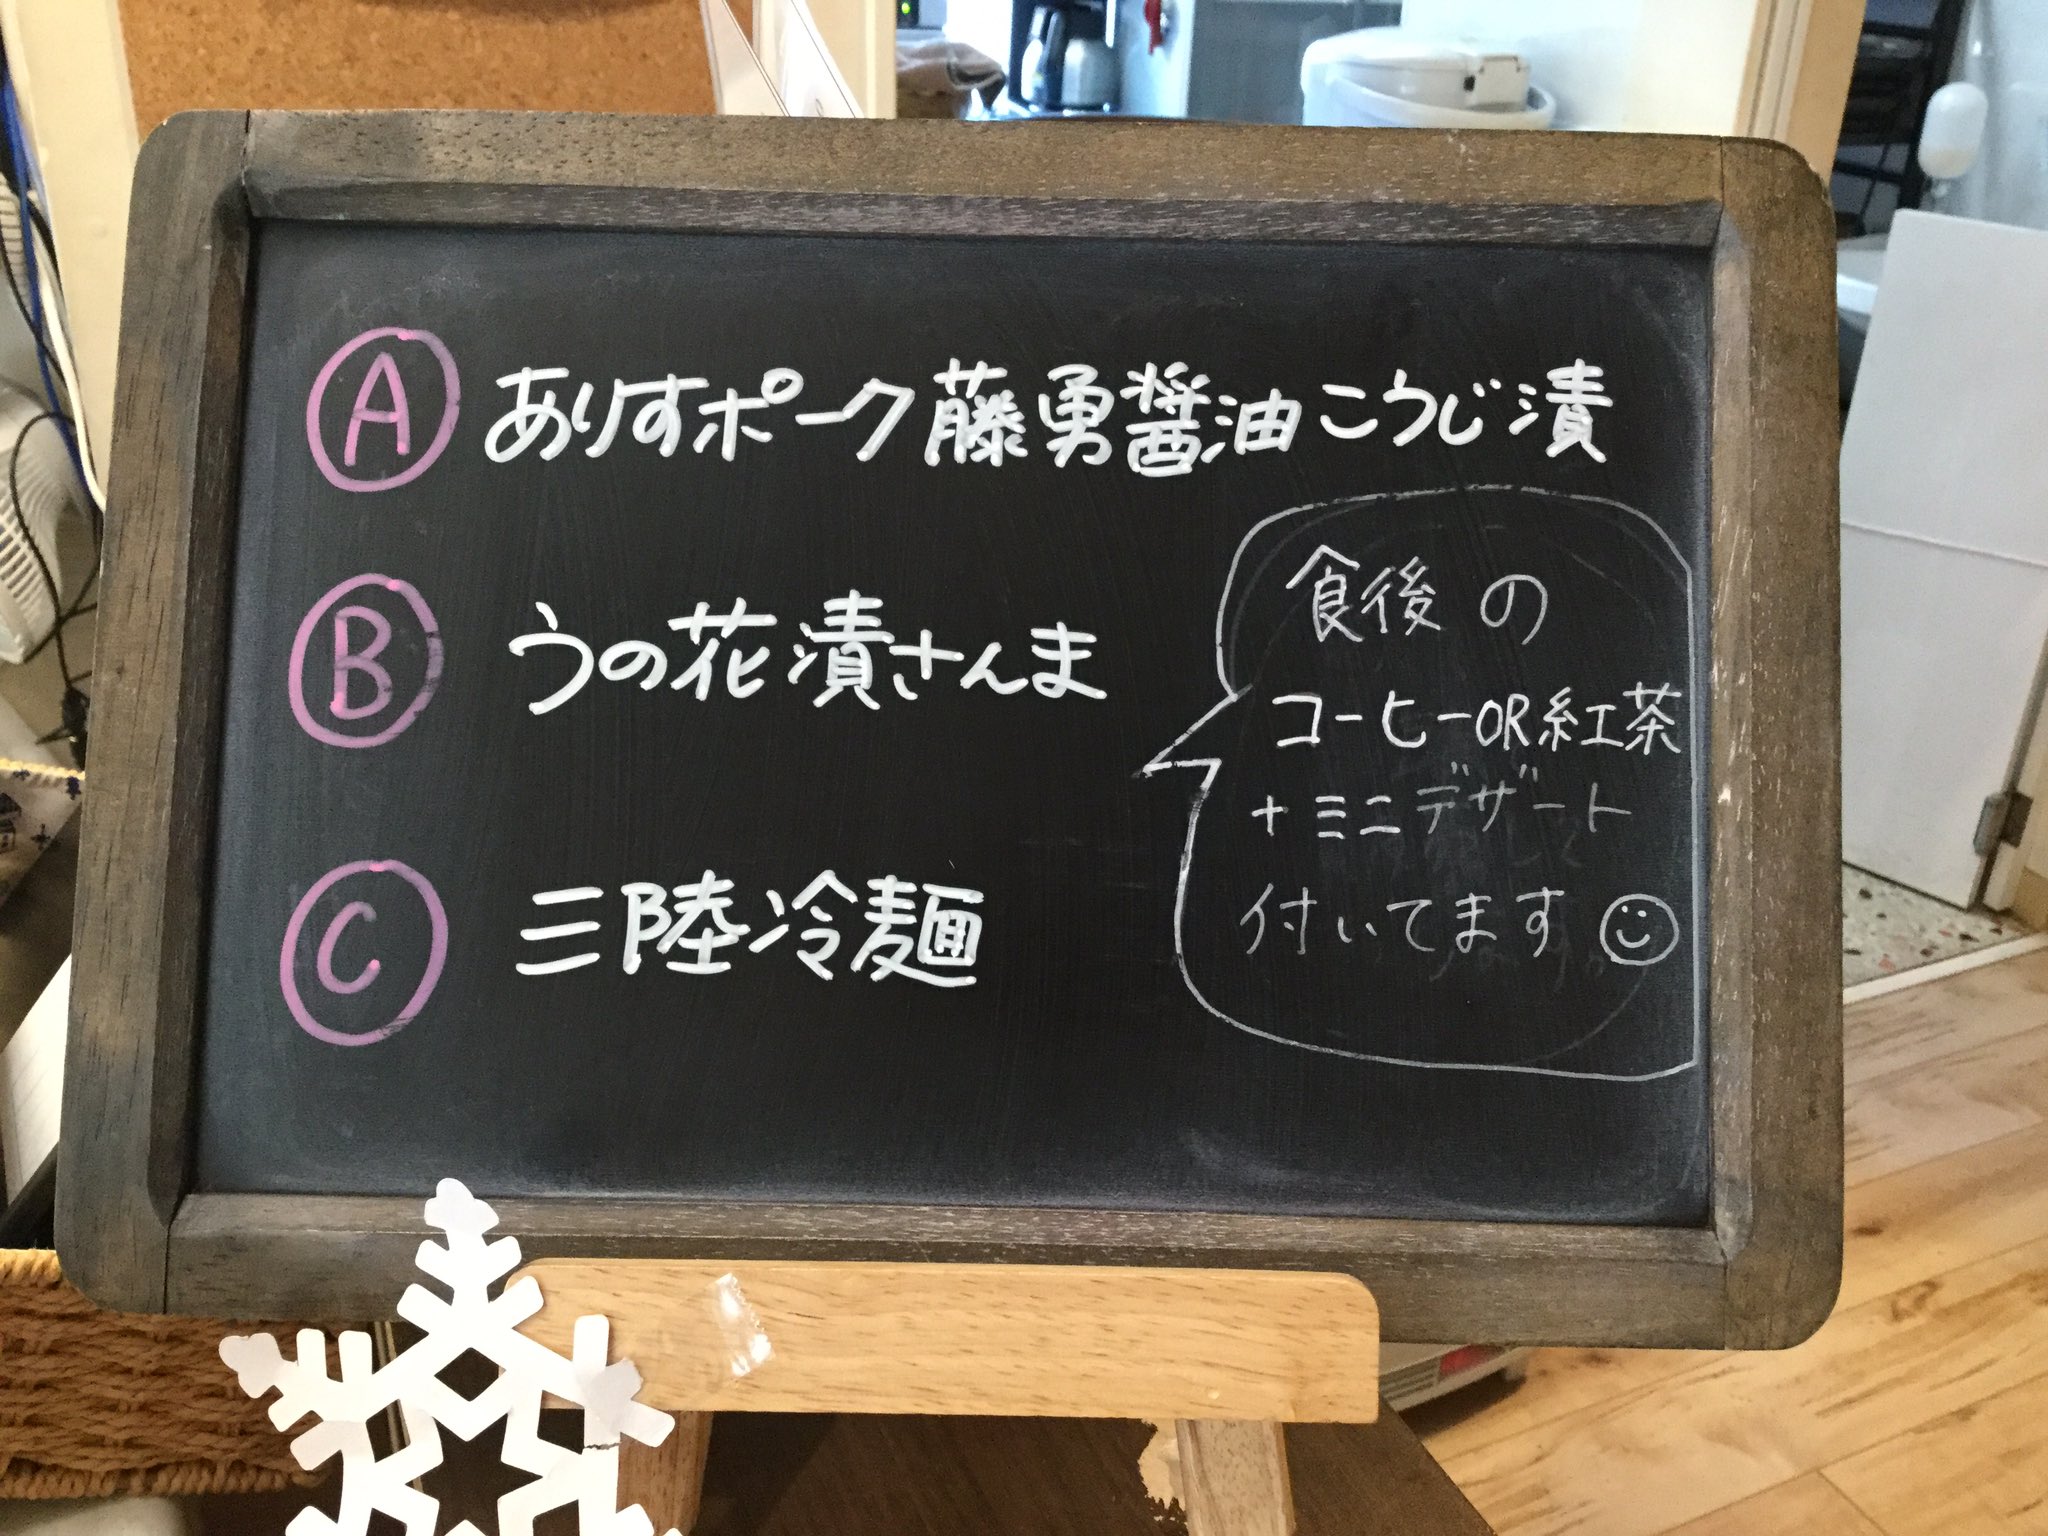 Ⓐ ありすポーク藤勇醤油こうじ漬
Ⓑ うの花漬さんま
Ⓒ 三陸冷麺
食後の
コーヒーOR紅茶
+ミニデザート
付いてます